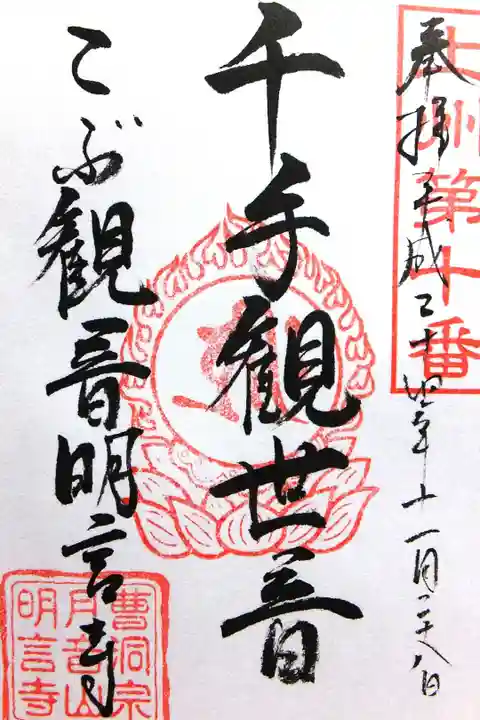 上州第十番
奉拝 平成二十四年十一月二十八日
千手観世音
こぶ観音明言寺
曹洞宗
月音山
明言寺